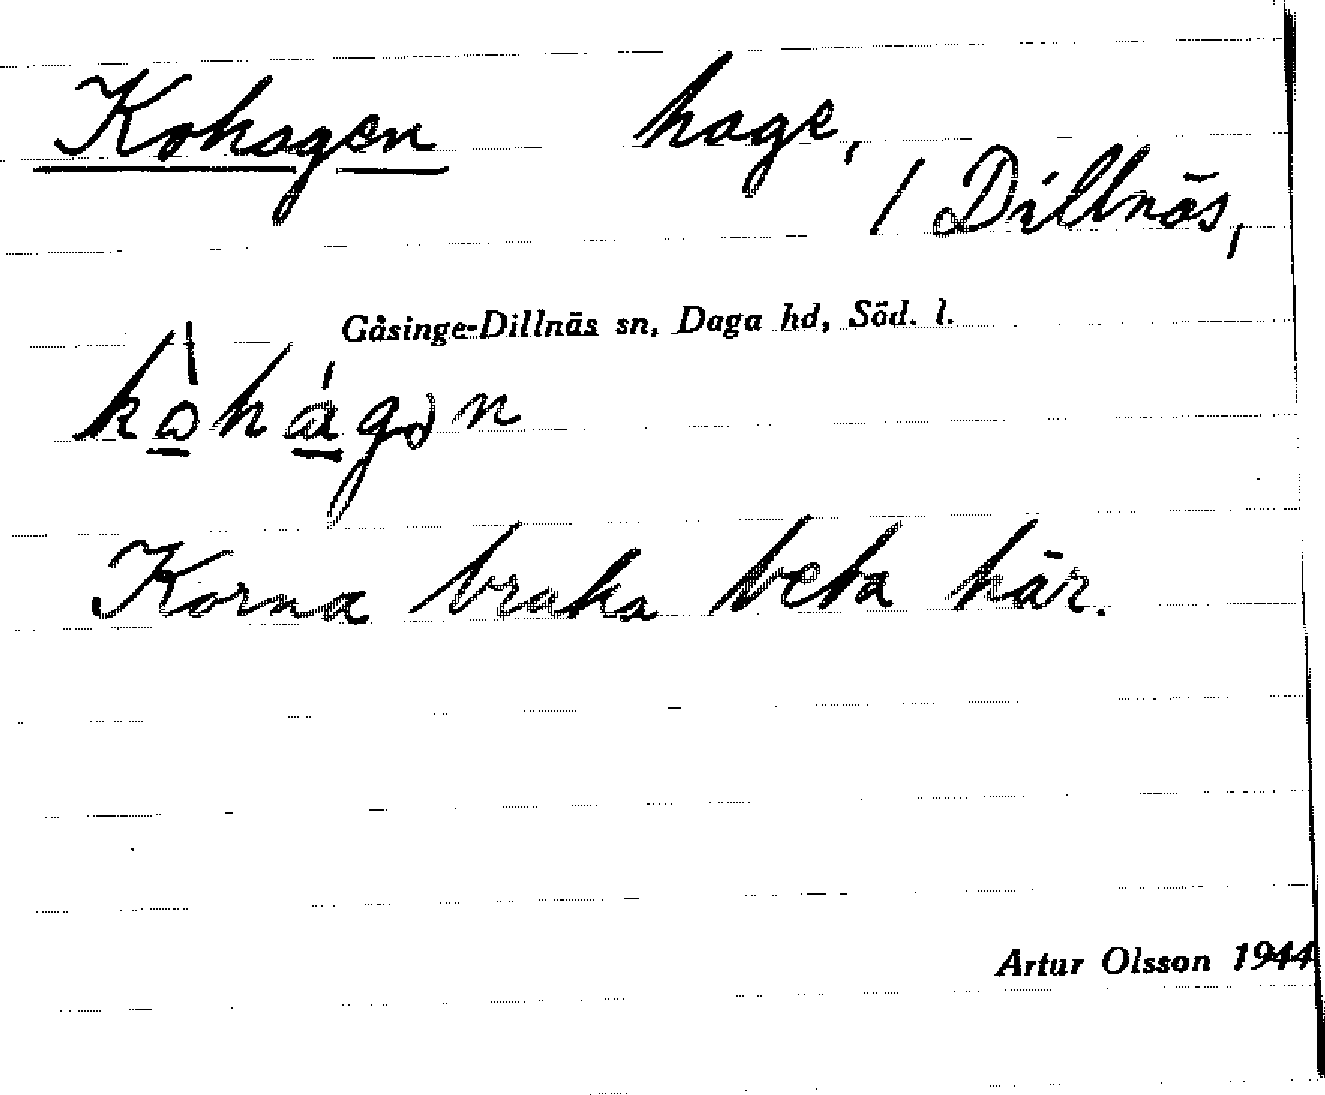 Kohagen hage,
/ Dillnäs,
Gåsinge-Dillnäs sn, Daga hd, Söd. l.
Korna bruka beta här.
Artur Olsson 1944